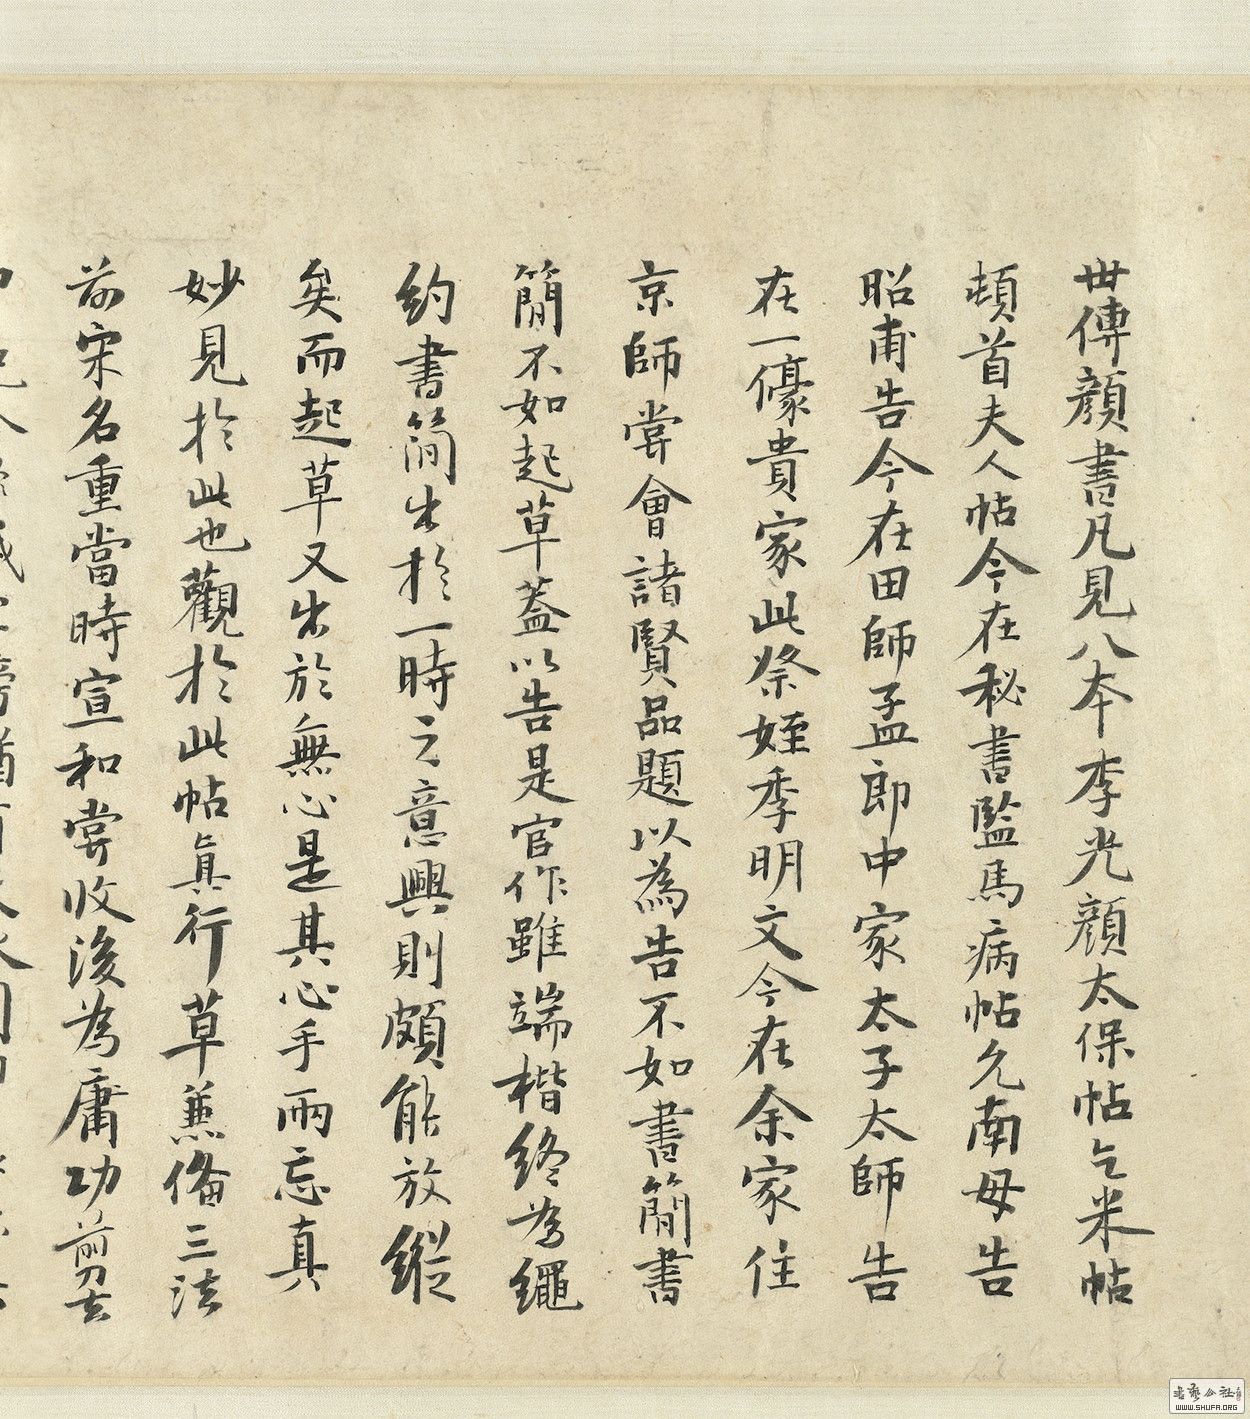 世傳顏書凡見八本李光顏太保帖乞米帖
頓首夫人帖今在秘書監馬病帖允南母告
昭甫告今在田師孟郎中家太子太師告
在一儫貴家此祭姪季明文今在余家住
京師嘗會諸賢品題以為告不如書簡書
簡不如起草葢以告是官作雖端楷終為繩
約書簡出於一時之意興則頗能放縱
矣而起草又出於無心是其心手兩忘真
妙見於此也觀於此帖真行草蒹俻三法
前宋名重當時宣和嘗收後為庸功剪去
書藝公社
WWW.SHUFA.ORG